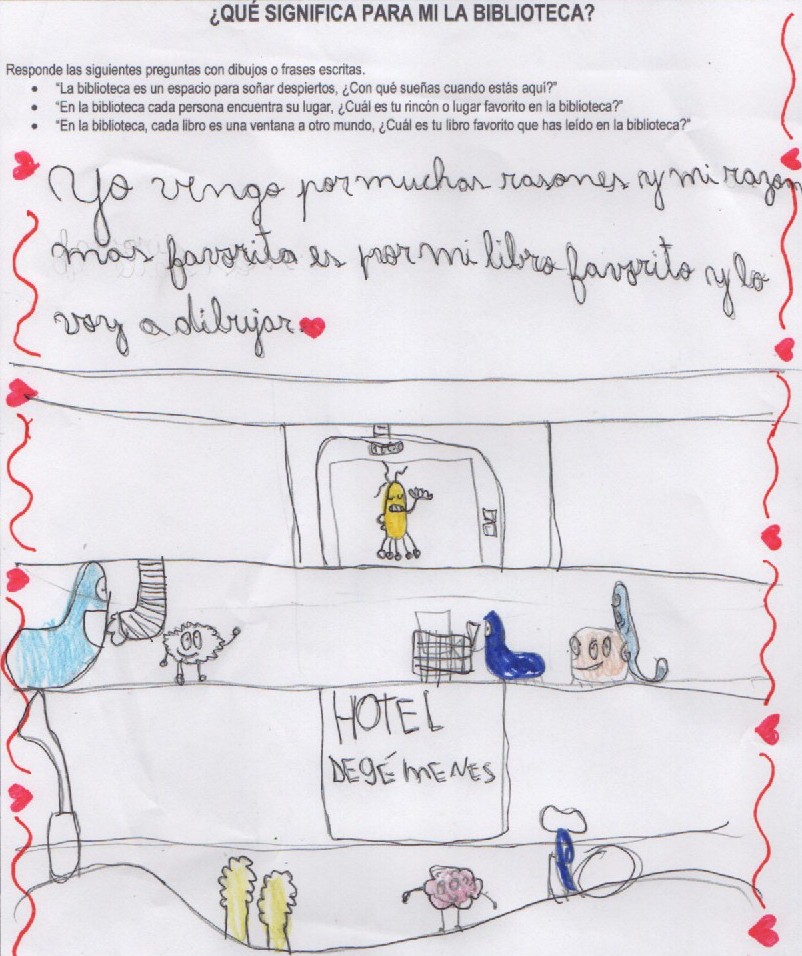 ¿QUÉ SIGNIFICA PARA MI LA BIBLIOTECA?
Responde las siguientes preguntas con dibujos o frases escritas.
• “La biblioteca es un espacio para soñar despiertos, ¿Con qué sueñas cuando estás aquí?”
• “En la biblioteca cada persona encuentra su lugar, ¿Cuál es tu rincón o lugar favorito en la biblioteca?”
• “En la biblioteca, cada libro es una ventana a otro mundo, ¿Cuál es tu libro favorito que has leído en la biblioteca?”
Yo vengo por muchas rasones y mi razon
mas favorita es por mi libro favorito y lo
voy a dibujar
HOTEL
DEGÉMENES